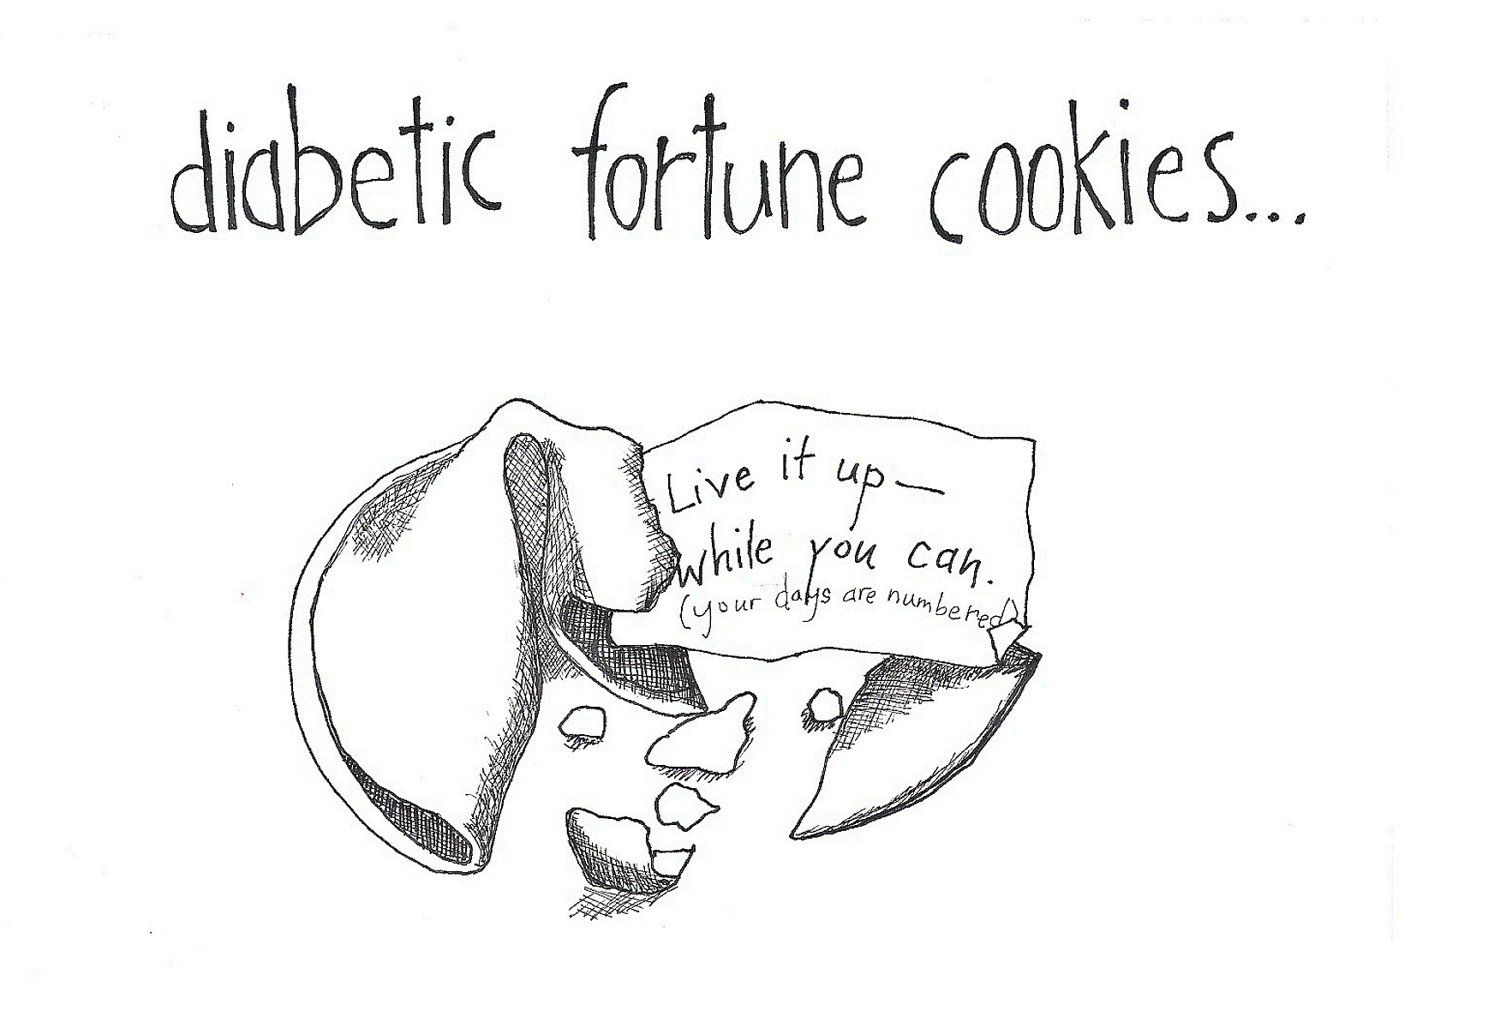 diabetic fortune cookies...
Live it up—
while you can.
(your days are numbered)